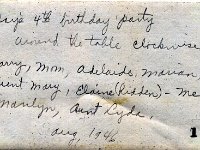 4th birthday party
around the table clockwise
Mom, Adelaide, Marian,
Aunt Mary, Elaine (hidden) - me
Marilyn, Aunt Lyda,
Aug, 1946
1